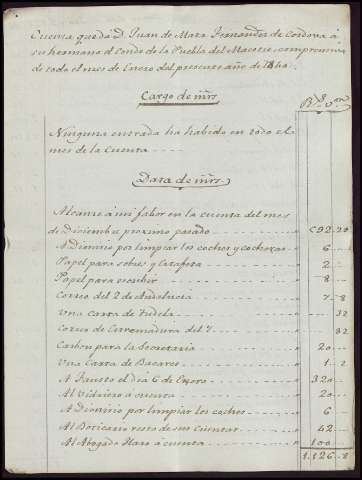 Cuenta que da Dn Juan de Mata Fernandez de Cordova á
su hermano el Conde de la Puebla del Maestre, comprensiva
de todo el mes de Enero del presente año de
Cargo de mrs
Rs von
Ninguna entrada ha habido en todo el
mes de la Cuenta
Data de mrs
Alcance á mi fabor en la cuenta del mes
de Diciembre proximo pasado 692..20
A Dionisio por limpiar los coches y cocheras 6
Papel para sobres y 2
Papel para escribir 8
Correo del 2 de Andalucia 7..8
Una Carta de Tudela 32
Correo de Estremadura del 7 32
Carbon para la Secretaria 20
Una Carta de 1..2
A Fausto el dia 6 de Enero 320
Al Vidriero a cuenta 20
A Dionisio por limpiar los coches 6
Al Boticario resto de sus Cuentas 42
Al Abogado Haro á cuenta 100
1.126..8